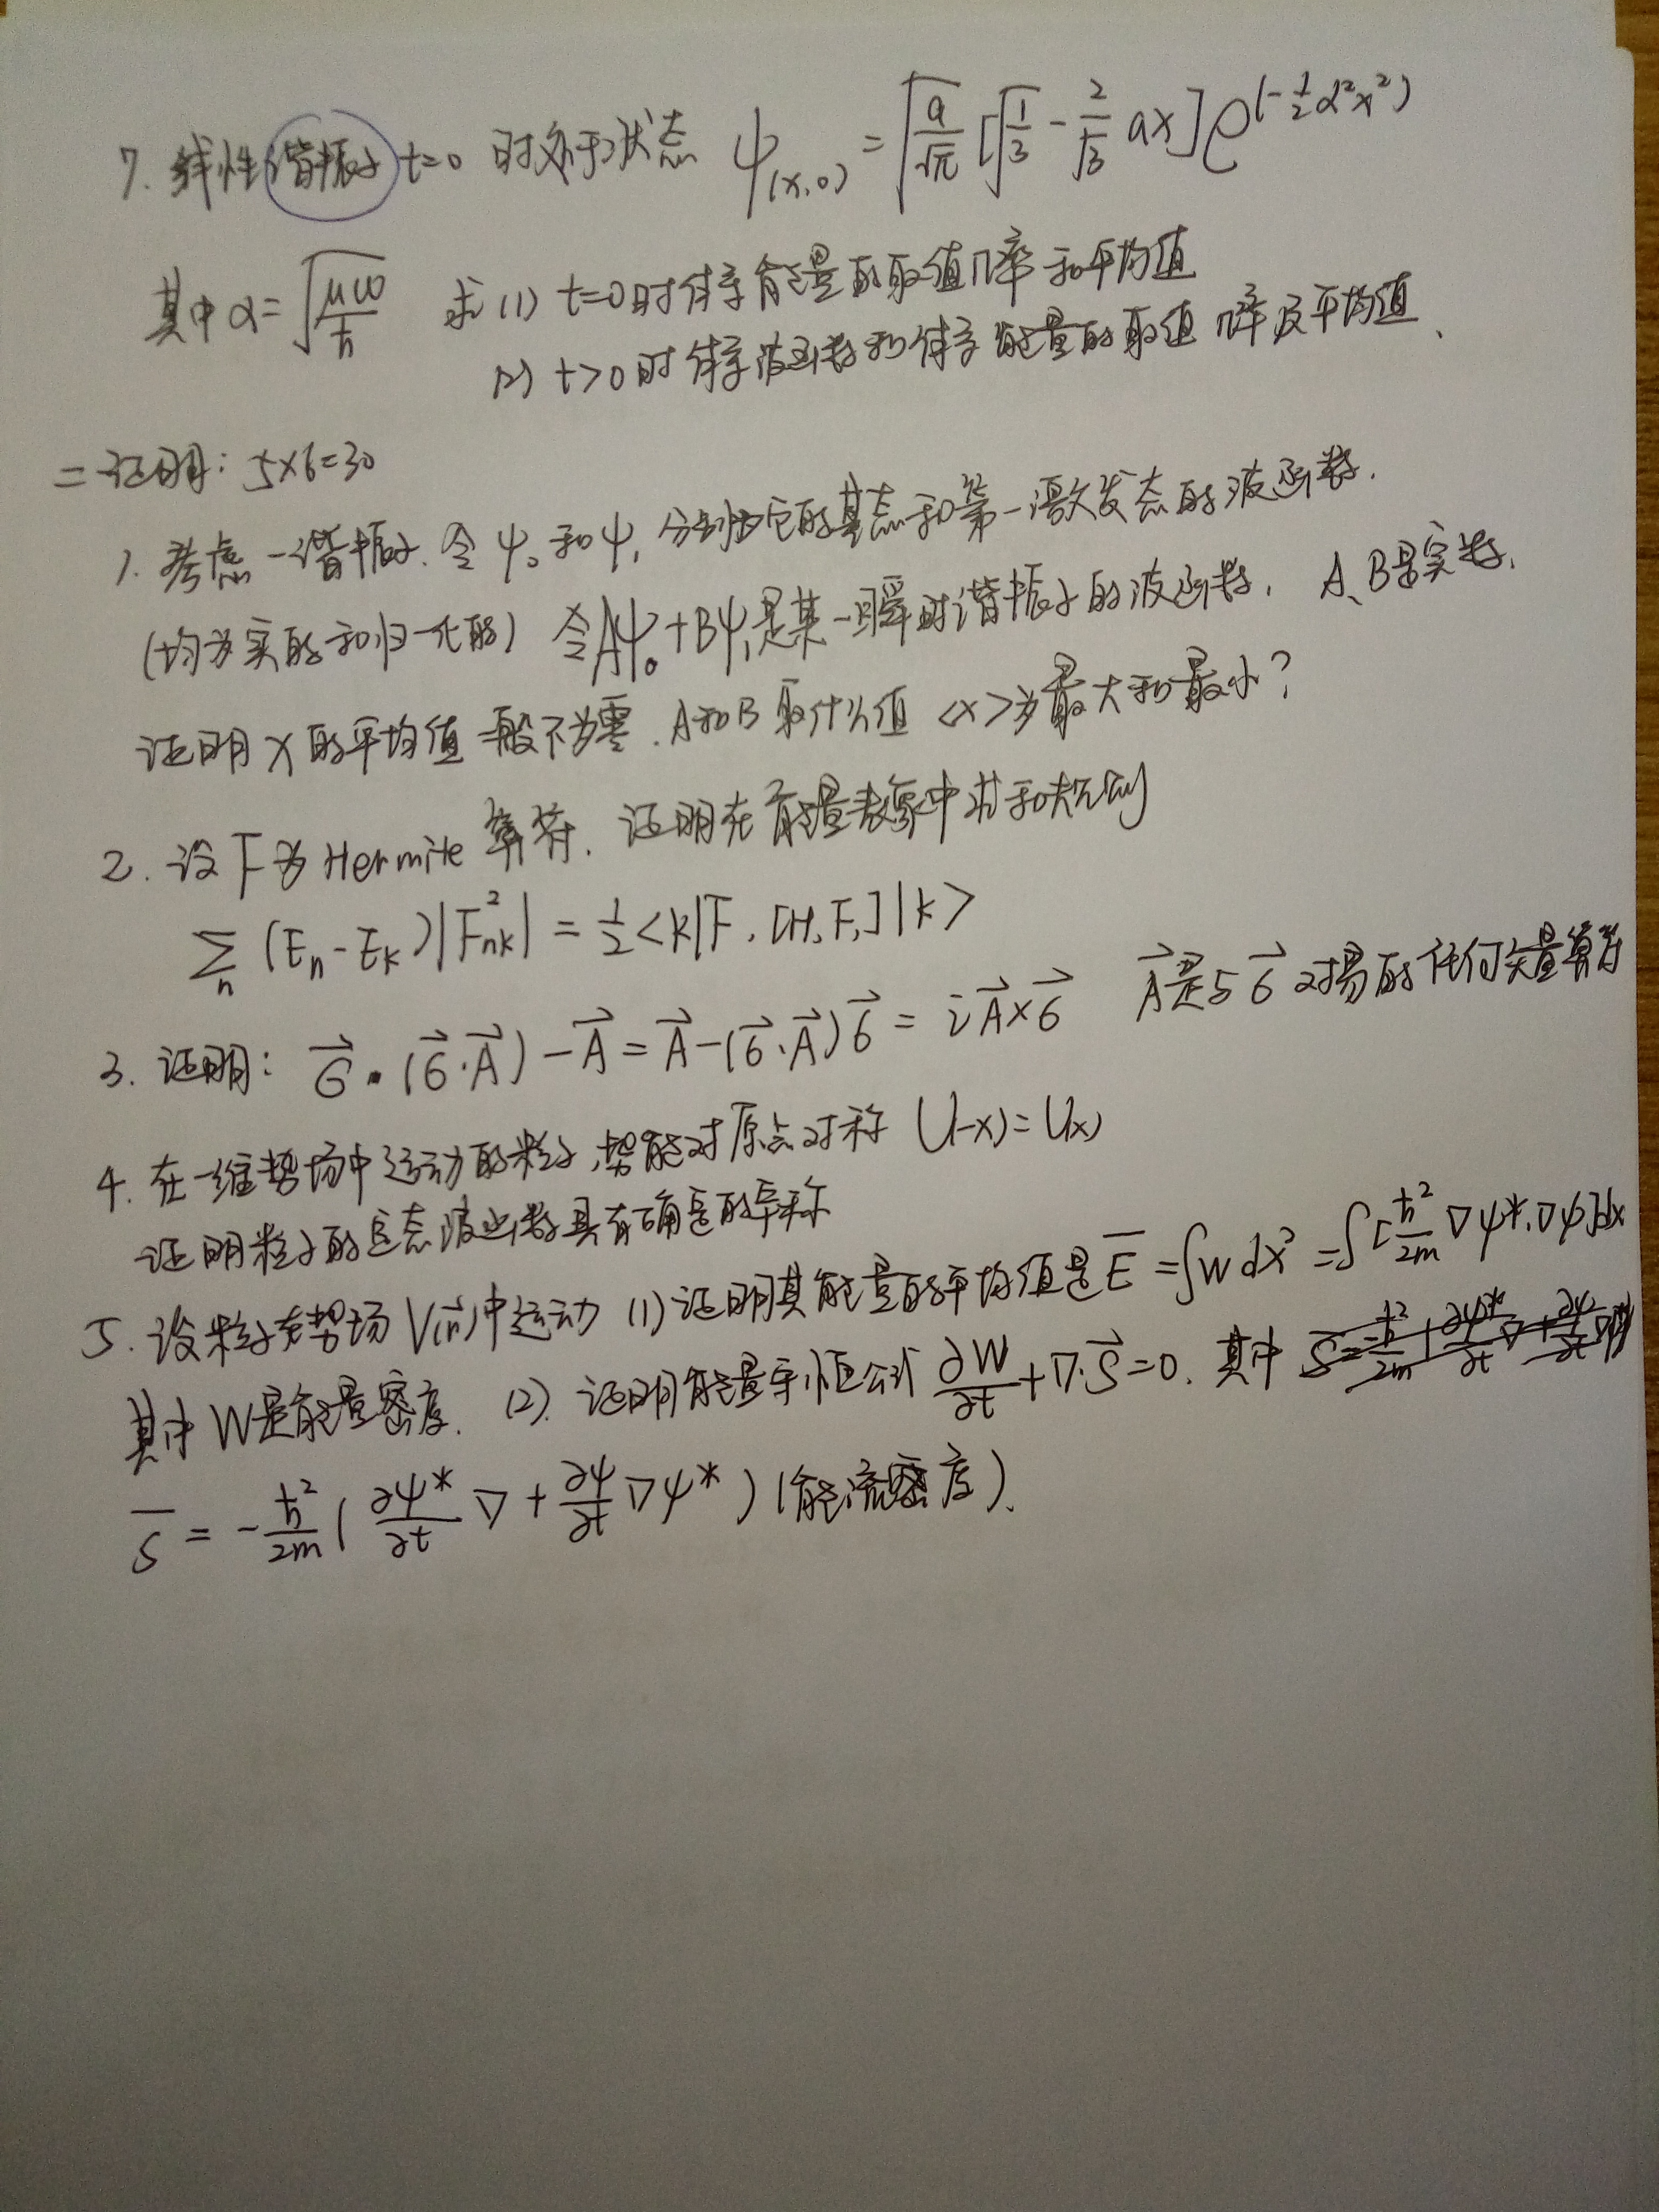 7. 线性谐振子 t=0 时处于状态 ψ(x,0) = √(a/√π) [√(1/3) - 2/√3 ax] e^(-1/2 α²x²)
其中 α=√(μω/ħ) 求 (1) t=0时体系能量的取值几率和平均值
(2) t>0时体系波函数和体系能量的取值几率及平均值、
二 证明: 5×6=30
1. 考虑一谐振子. 令 ψ₀ 和 ψ₁ 分别为它的基态和第一激发态的波函数.
(均为实的和归一化的) 令Aψ₀+Bψ₁是某一瞬时谐振子的波函数, A、B是实数,
证明 x 的平均值一般不为零. A和B取什么值 <x>为最大和最小?
2. 设 F 为 Hermite 算符. 证明在能量表象中求和规则
∑n (En - Ek)|F²nk| = 1/2 <k|F, [H, F,]|k>
3. 证明: σ⃗·(σ⃗·A⃗) - A⃗ = A⃗ - (σ⃗·A⃗)σ⃗ = iA⃗×σ⃗ A⃗是与σ⃗对易的任何矢量算符
4. 在一维势场中运动的粒子,势能对原点对称 U(-x)=U(x)
证明粒子的定态波函数具有确定的宇称
5. 设粒子在势场 V(r⃗)中运动 (1)证明其能量的平均值是 E̅ = ∫W dx³ = ∫[ħ²/2m ∇ψ*·∇ψ]dx
其中 W是能量密度. (2). 证明能量守恒公式 ∂W/∂t + ∇·S⃗ = 0. 其中
S̅ = -ħ²/2m ( ∂ψ*/∂t ∇ + ∂ψ/∂t ∇ψ* ) (能流密度).